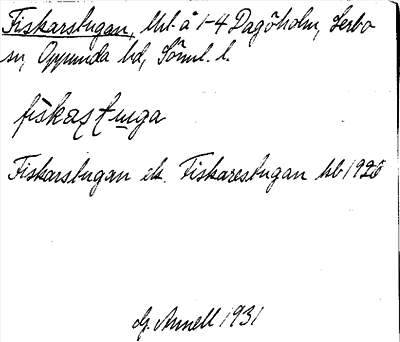 Fiskarstugan, lht. å 1-4 Dagöholm, Lerbo
sn, Oppunda hd, Söml. l.
fiskaștuga
Fiskarstugan ek. Fiskarestugan hb 1925
G. Annell 1931